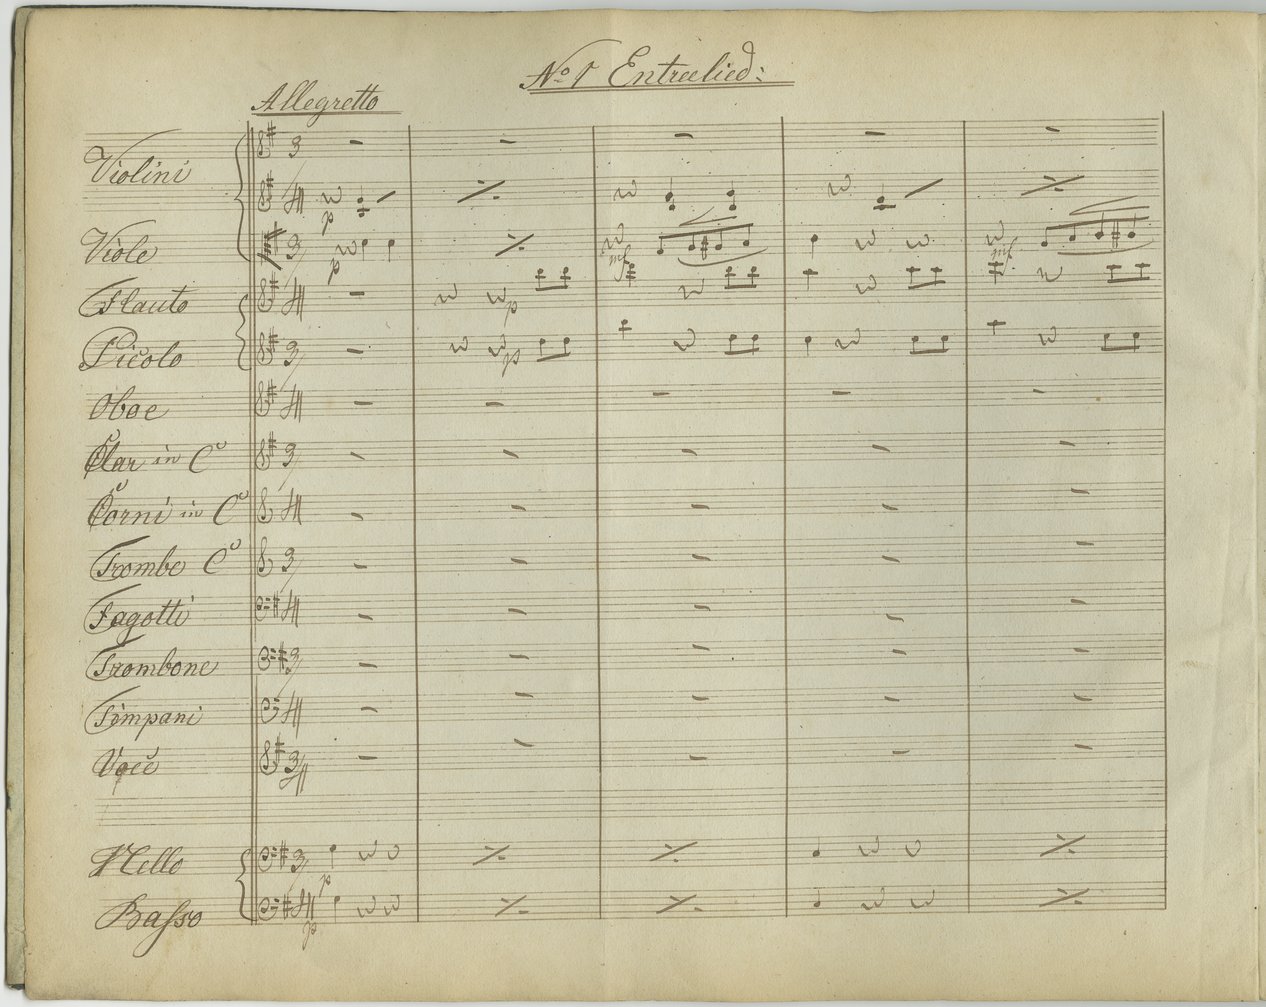 No 1 Entreelied:
Allegretto
Violini
p
Viole
p
mf
mf
Flauto
p
Picolo
p
Oboe
Clar in C
Corni in C
Trombe C
Fagotti
Trombone
Timpani
Voce
Cello
p
Basso
p